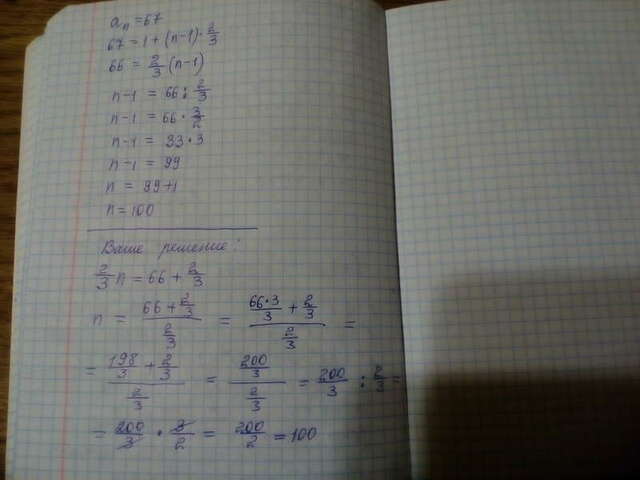 aₙ = 67
67 = 1 + (n-1)·2/3
66 = 2/3 (n-1)
n-1 = 66 : 2/3
n-1 = 66 · 3/2
n-1 = 33 · 3
n-1 = 99
n = 99+1
n = 100
Ваше решение:
2/3 n = 66 + 2/3
n = (66 + 2/3)/(2/3) = (66·3/3 + 2/3)/(2/3) =
= (198/3 + 2/3)/(2/3) = (200/3)/(2/3) = 200/3 : 2/3 =
= 200/3 · 3/2 = 200/2 = 100